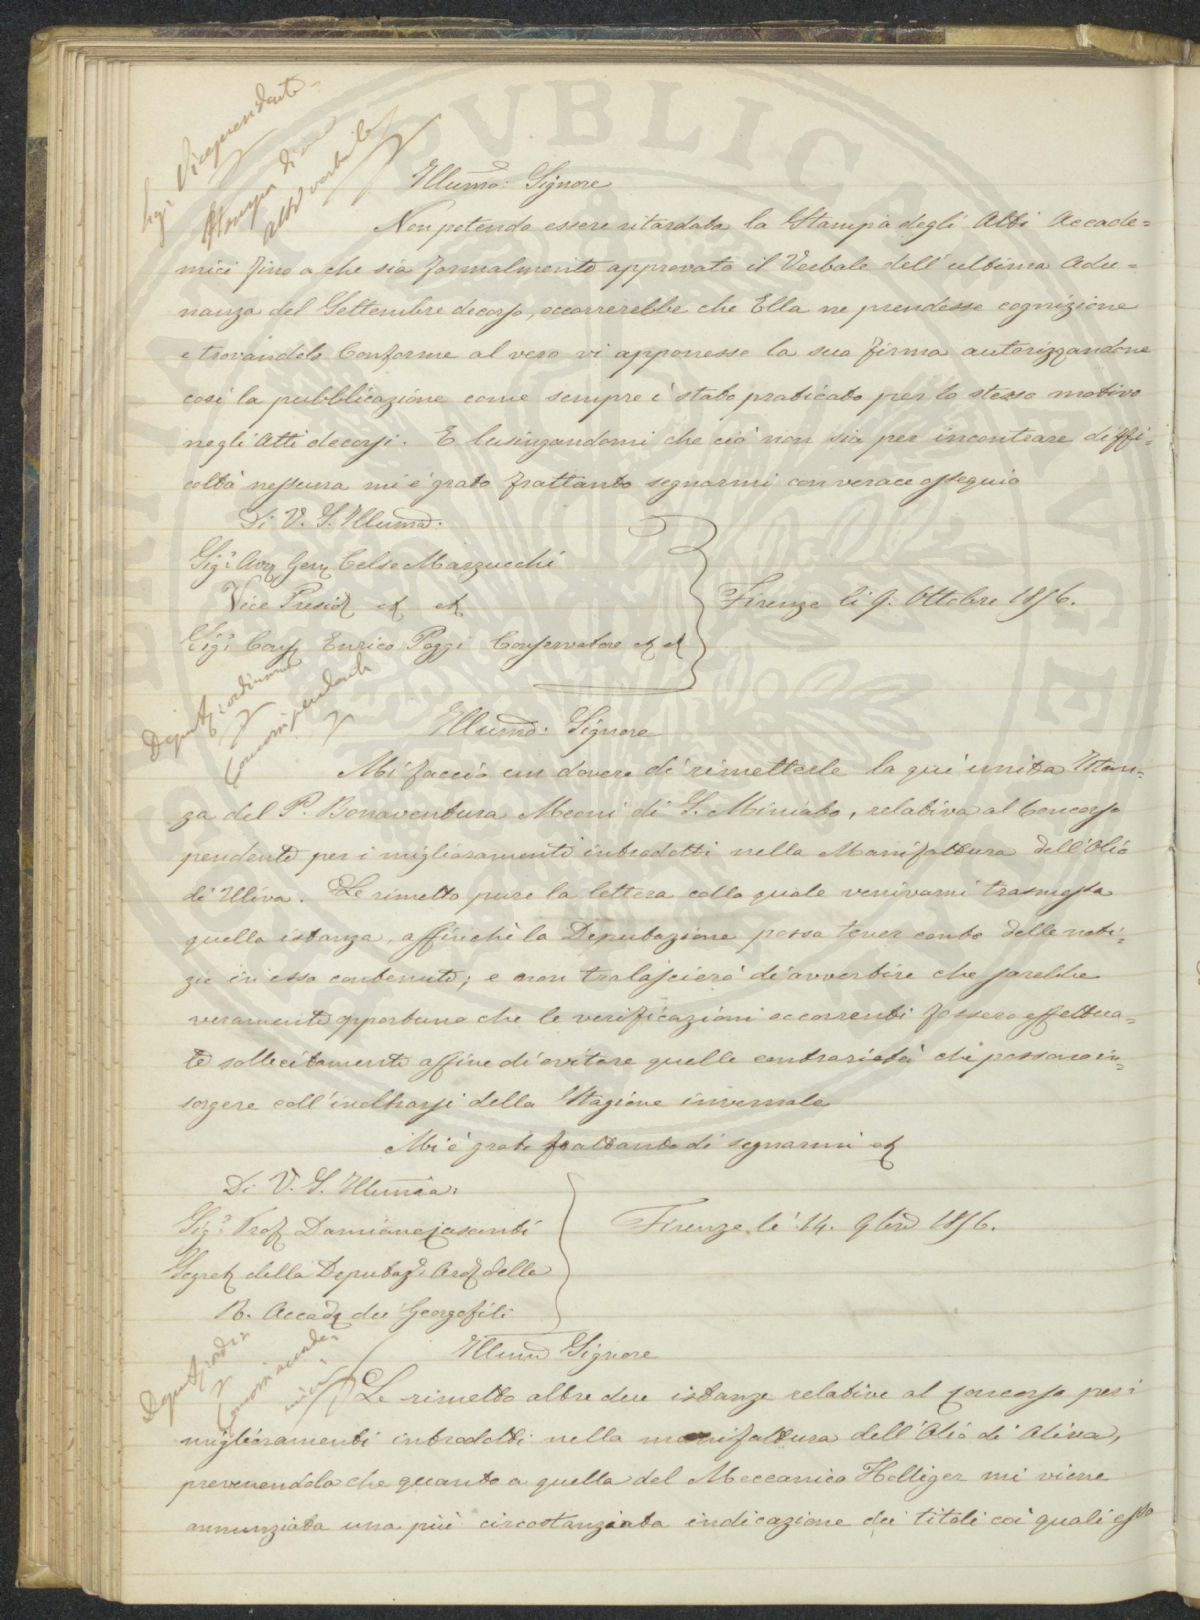 Sig.r Vicepresidente
Stampa di un
Atto verbale
Illumo: Signore
Non potendo essere ritardata la Stampa degli Atti Accade=
mici fino a che sia formalmente approvato il Verbale dell'ultima Adu=
nanza del Settembre decorso, occorrerebbe che Ella ne prendesse cognizione
e trovandolo Conforme al vero vi apponesse la sua firma autorizzandone
così la pubblicazione come sempre è stato praticato per lo stesso motivo
negli Atti decorsi. E lusingandomi che ciò non sia per incontrare diffi=
coltà nessuna mi è grato frattanto segnarmi con verace ossequio
Di V. S. Illuma:
Sig.r Avv Gen Celso Marzucchi
Vice Presid. ec ec
Sig.r Cons Enrico Poggi Conservatore ec ec
Firenze li 9. Ottobre 1856.
Deputaz ordinaria
Concorsi pendenti
Illumo: Signore
Mi faccio un dovere di rimetterle la qui unita Istan=
za del P. Bonaventura Meoni di S. Miniato, relativa al Concorso
pendente per i miglioramenti introdotti nella Manifattura dell'Olio
di Uliva. Le rimetto pure la lettera colla quale venivami trasmessa
quella istanza, affinchè la Deputazione possa tener conto delle noti=
zie in essa contenute; e non tralascierò di avvertire che sarebbe
veramente opportuno che le verificazioni occorrenti fossero effettua=
te sollecitamente affine di evitare quelle contrarietà che possono in=
sorgere coll'inoltrarsi della Stagione invernale
Mi è grato frattanto di segnarmi ec
Di V. S. Illuma:
Sig.r Prof Damiano Casanti
Segret della Deputaz Ord della
R. Accad dei Georgofili
Firenze li 14. 9bre 1856.
Deputaz ord
Concorsi accade=
mici
Illumo Signore
Le rimetto altre due istanze relative al concorso per i
miglioramenti introdotti nella manifattura dell'Olio di Oliva,
prevenendola che quanto a quella del Meccanico Holliger mi viene
annunziata una più circostanziata indicazione dei titoli coi quali esso